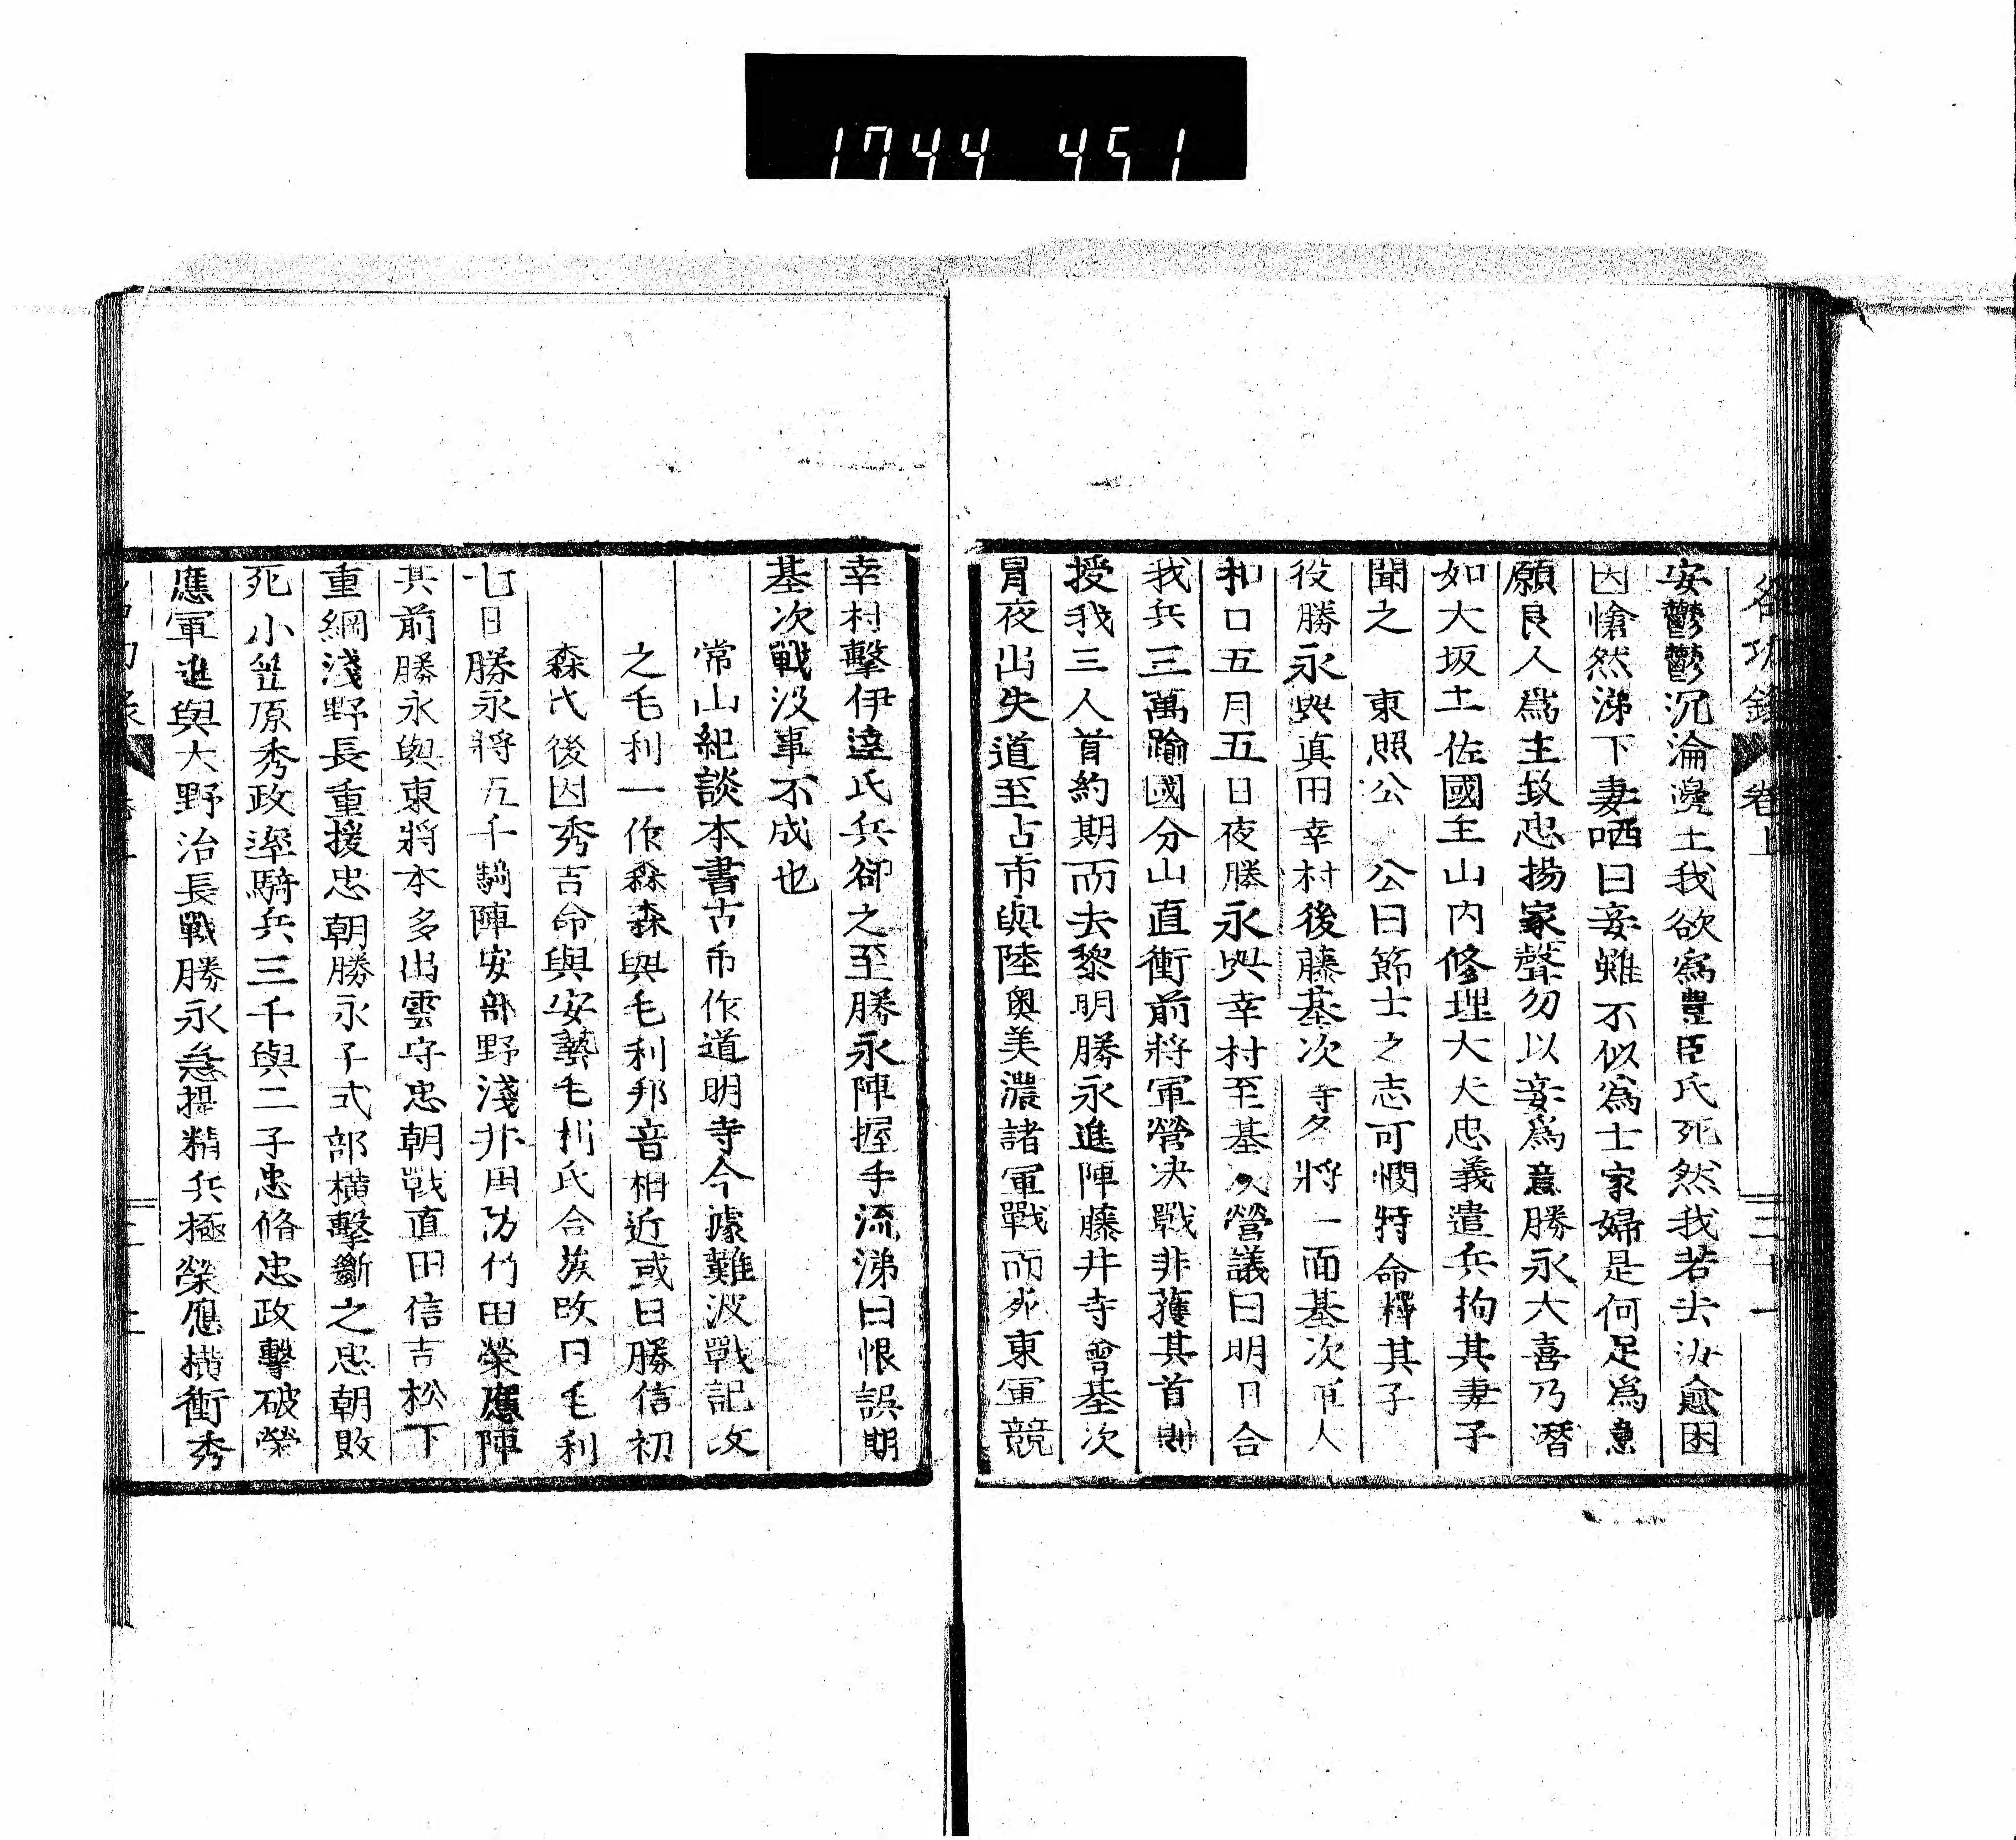 1744 451
卷上
三十一
安鬱鬱沉淪邊土我欲爲豐臣氏死然我若去汝愈困
因愴然涕下妻哂曰妾雖不似爲士家婦是何足爲意
願良人爲主致忠揚家聲勿以妾爲意勝永大喜乃潛
如大坂土佐國主山内修理大夫忠義遣兵拘其妻子
聞之 東照公 公曰節士之志可憫特命釋其子
役勝永與真田幸村後藤基次等各將一面基次軍人
和口五月五日夜勝永與幸村至基次營議曰明日合
我兵三萬踰國分山直衝前將軍營决戰非獲其首則
授我三人首約期而去黎明勝永進陣藤井寺會基次
冒夜出失道至古市與陸奥美濃諸軍戰而死東軍競
幸村擊伊達氏兵卻之至勝永陣握手流涕曰恨誤期
基次戰没事不成也
常山紀談本書古市作道明寺今據難波戰記改
之毛利一作森森與毛利邦音相近或曰勝信初
森氏後因秀吉命與安藝毛利氏合族改曰毛利
七日勝永將五千騎陣安部野淺井周防竹田榮應陣
其前勝永與東將本多出雲守忠朝戰直田信吉松下
重綱淺野長重援忠朝勝永子式部横擊斷之忠朝敗
死小笠原秀政率騎兵三千與二子忠脩忠政擊破榮
應軍進與大野治長戰勝永急提精兵極榮應横衝秀